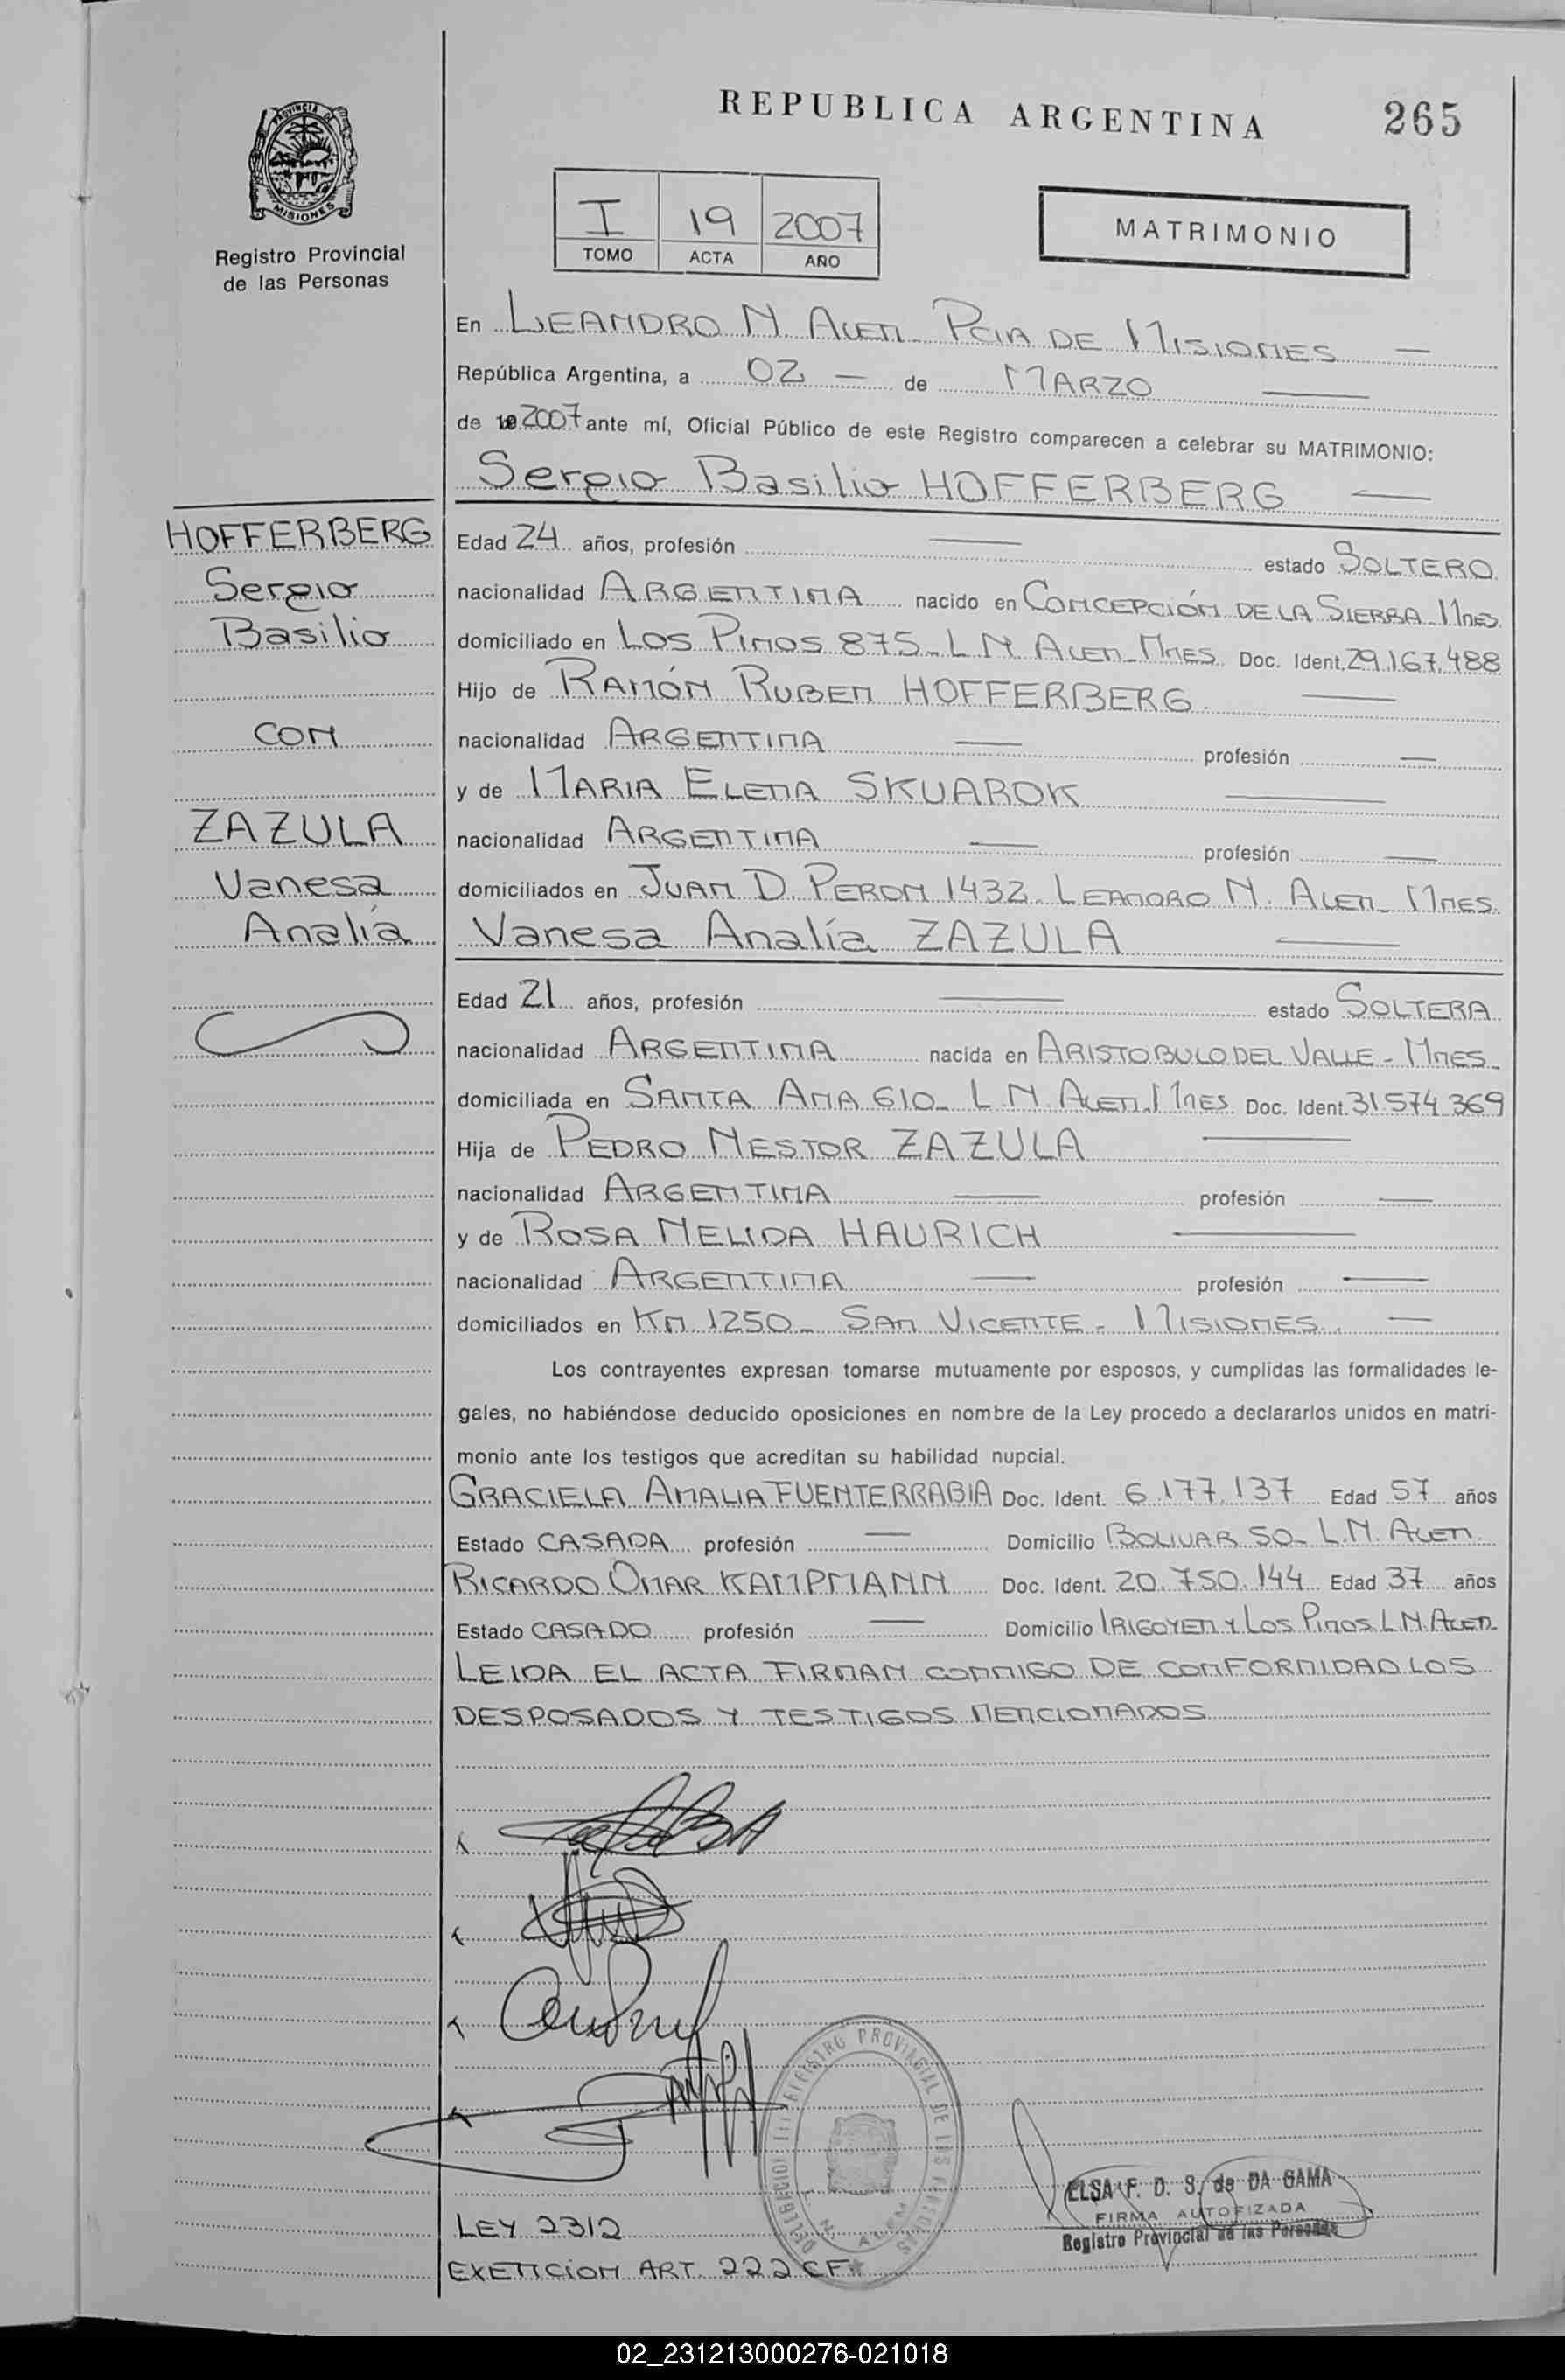 REPUBLICA ARGENTINA
265
PROVINCIA DE
MISIONES
Registro Provincial
de las Personas
I 19 2007
TOMO ACTA AÑO
MATRIMONIO
En LEANDRO N. ALEM PCIA DE MISIONES
República Argentina, a 02 de MARZO
de 2007 ante mí, Oficial Público de este Registro comparecen a celebrar su MATRIMONIO:
Sergio Basilio HOFFERBERG
HOFFERBERG
Sergio
Basilio
CON
ZAZULA
Vanesa
Analía
Edad 24 años, profesión — estado SOLTERO
nacionalidad ARGENTINA nacido en CONCEPCIÓN DE LA SIERRA Mnes
domiciliado en LOS PINOS 875 - L N ALEM - MNES Doc. Ident. 29.167.488
Hijo de RAMÓN RUBEN HOFFERBERG
nacionalidad ARGENTINA — profesión —
y de MARIA ELENA SKUAROK
nacionalidad ARGENTINA — profesión —
domiciliados en JUAN D. PERON 1432. LEANDRO N. ALEM - MNES.
Vanesa Analía ZAZULA
Edad 21 años, profesión — estado SOLTERA
nacionalidad ARGENTINA nacida en ARISTOBULO DEL VALLE - MNES
domiciliada en SANTA ANA 610 - L N ALEM - MNES Doc. Ident. 31.574.369
Hija de PEDRO NESTOR ZAZULA
nacionalidad ARGENTINA — profesión —
y de ROSA NELIDA HAURICH
nacionalidad ARGENTINA — profesión —
domiciliados en KM 1250 - SAN VICENTE - MISIONES.
Los contrayentes expresan tomarse mutuamente por esposos, y cumplidas las formalidades le-
gales, no habiéndose deducido oposiciones en nombre de la Ley procedo a declararlos unidos en matri-
monio ante los testigos que acreditan su habilidad nupcial.
GRACIELA AMALIA FUENTERRABIA Doc. Ident. 6.177.137 Edad 57 años
Estado CASADA profesión — Domicilio BOLIVAR 50 - L.N. ALEM.
RICARDO OMAR KAMPMANN Doc. Ident. 20.750.144 Edad 37 años
Estado CASADO profesión — Domicilio IRIGOYEN Y LOS PINOS L.N. ALEM
LEIDA EL ACTA FIRMAN CONMIGO DE CONFORMIDAD LOS
DESPOSADOS Y TESTIGOS MENCIONADOS
REGISTRO PROVINCIAL DE LAS PERSONAS
L. N. ALEM
ELSA F. D. S. de DA GAMA
FIRMA AUTORIZADA
Registro Provincial de las Personas
LEY 2312
EXENCION ART. 222 CF
02_231213000276-021018